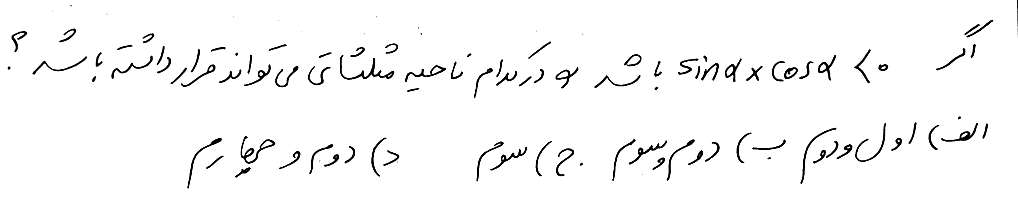 اگر sinα×cosα < ۰ باشد α در کدام ناحیه مثلثاتی می تواند قرار داشته باشد ؟
الف) اول و دوم ب) دوم و سوم ج) سوم د) دوم و چهارم